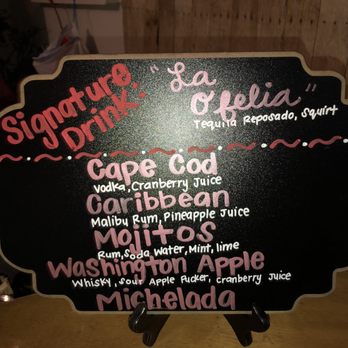 Signature Drink: "La Ofelia"
Tequila Reposado, Squirt
Cape Cod
Vodka, Cranberry Juice
Caribbean
Maliby Rum, Pineapple Juice
Mojitos
Rum, Soda Water, Mint, lime
Washington Apple
Whisky, Sour Apple Pucker, Cranberry Juice
Michelada